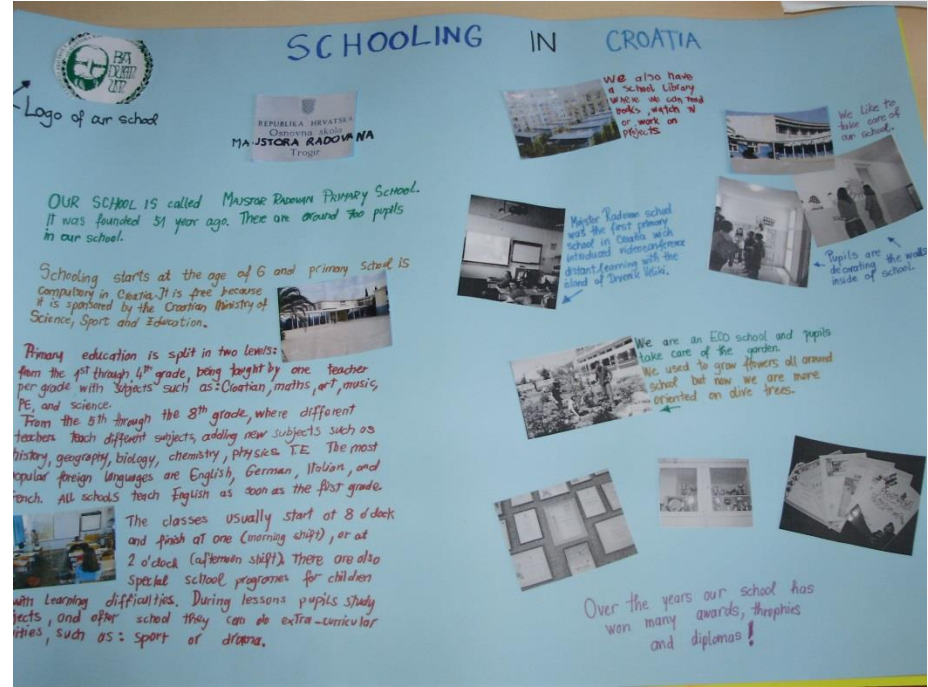 SCHOOLING IN CROATIA
BA
DUAN
UR
Logo of our school
REPUBLIKA HRVATSKA
Osnovna škola
MAJSTORA RADOVANA
Trogir
OUR SCHOOL IS called MAJSTOR RADOVAN PRIMARY SCHOOL.
It was founded 31 year ago. There are around 700 pupils
in our school.
Schooling starts at the age of 6 and primary school is
compulsory in Croatia. It is free because
it is sponsored by the Croatian Ministry of
Science, Sport and Education.
Primary education is split in two levels:
from the 1st through 4th grade, being taught by one teacher
per grade with subjects such as: Croatian, maths, art, music,
PE, and science.
From the 5th through the 8th grade, where different
teachers teach different subjects, adding new subjects such as
history, geography, biology, chemistry, physics T.E The most
opular foreign languages are English, German, Italian, and
ench. All schools teach English as soon as the first grade.
The classes usually start at 8 o'clock
and finish at one (morning shift), or at
2 o'clock (afternoon shift). There are also
special school programes for children
with learning difficulties. During lessons pupils study
jects, and after school they can do extra-curricular
ities, such as: sport or drama.
We also have
a school library
where we can read
books, watch TV
or work on
projects.
We like to
take care of
our school.
Majstor Radovan school
was the first primary
school in Croatia wich
introduced videoconference
distant learning with the
island of Drvenik Veliki.
Pupils are
decorating the walls
inside of school.
We are an ECO school and pupils
take care of the garden.
We used to grow flowers all around
school but now we are more
oriented on olive trees.
Over the years our school has
won many awards, throphies
and diplomas!